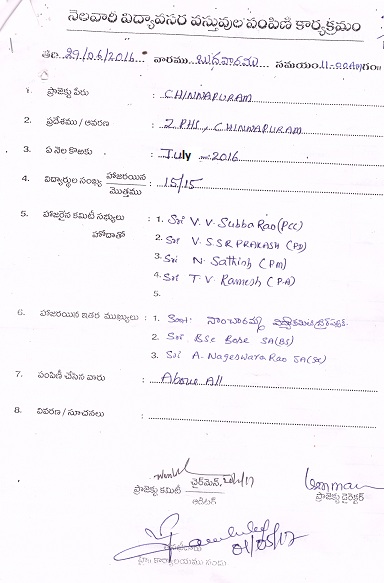 నెలవారీ విద్యావసర వస్తువుల పంపిణీ కార్యక్రమం
తేది: 29/06/2016 వారము బుధవారము సమయం: 11-00
1. ప్రాజెక్టు పేరు : CHINNAPURAM
2. ప్రదేశము / ఆవరణ : ZPHS, CHINNAPURAM
3. ఏ నెల కొఱకు : July 2016
4. విద్యార్థుల సంఖ్య హాజరయిన / మొత్తము : 15/15
5. హాజరైన కమిటీ సభ్యులు : 1. Sri V. V. Subba Rao (PCC)
హోదాతో 2. Sri V. S. S R PRAKASH (PD)
3. Sri N. Sathish (PM)
4. Sri T. V. Ramesh (P.A)
5.
6. హాజరయిన ఇతర ముఖ్యులు : 1. Smt. సాంబారమ్మ
2. Sri. BSc Bose SA(BS)
3. Sri A. Nageswara Rao SA(SS)
7. పంపిణీ చేసిన వారు : Above All
8. వివరణ / సూచనలు :
ప్రాజెక్టు కమిటీ చైర్మెన్,
ఆడిటర్
ప్రాజెక్టు డైరెక్టర్
01/05/17